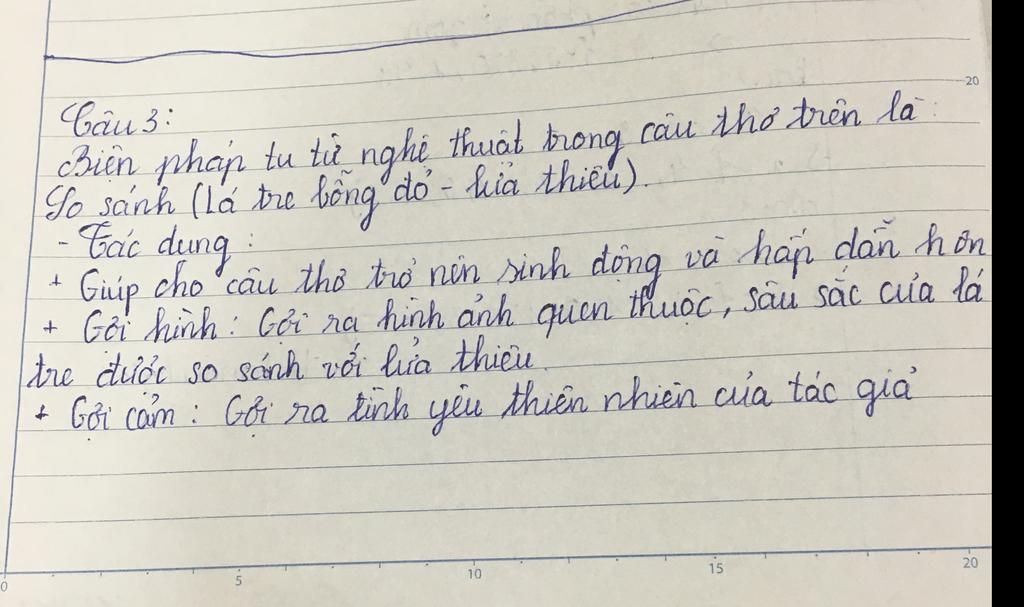 20
Câu 3:
Biện pháp tu từ nghệ thuật trong câu thơ trên là:
So sánh (lá tre bỗng đỏ - lửa thiêu).
- Tác dụng:
+ Giúp cho câu thơ trở nên sinh động và hấp dẫn hơn
+ Gợi hình: Gợi ra hình ảnh quen thuộc, sâu sắc của lá
tre được so sánh với lửa thiêu.
+ Gợi cảm: Gợi ra tình yêu thiên nhiên của tác giả
0 5 10 15 20